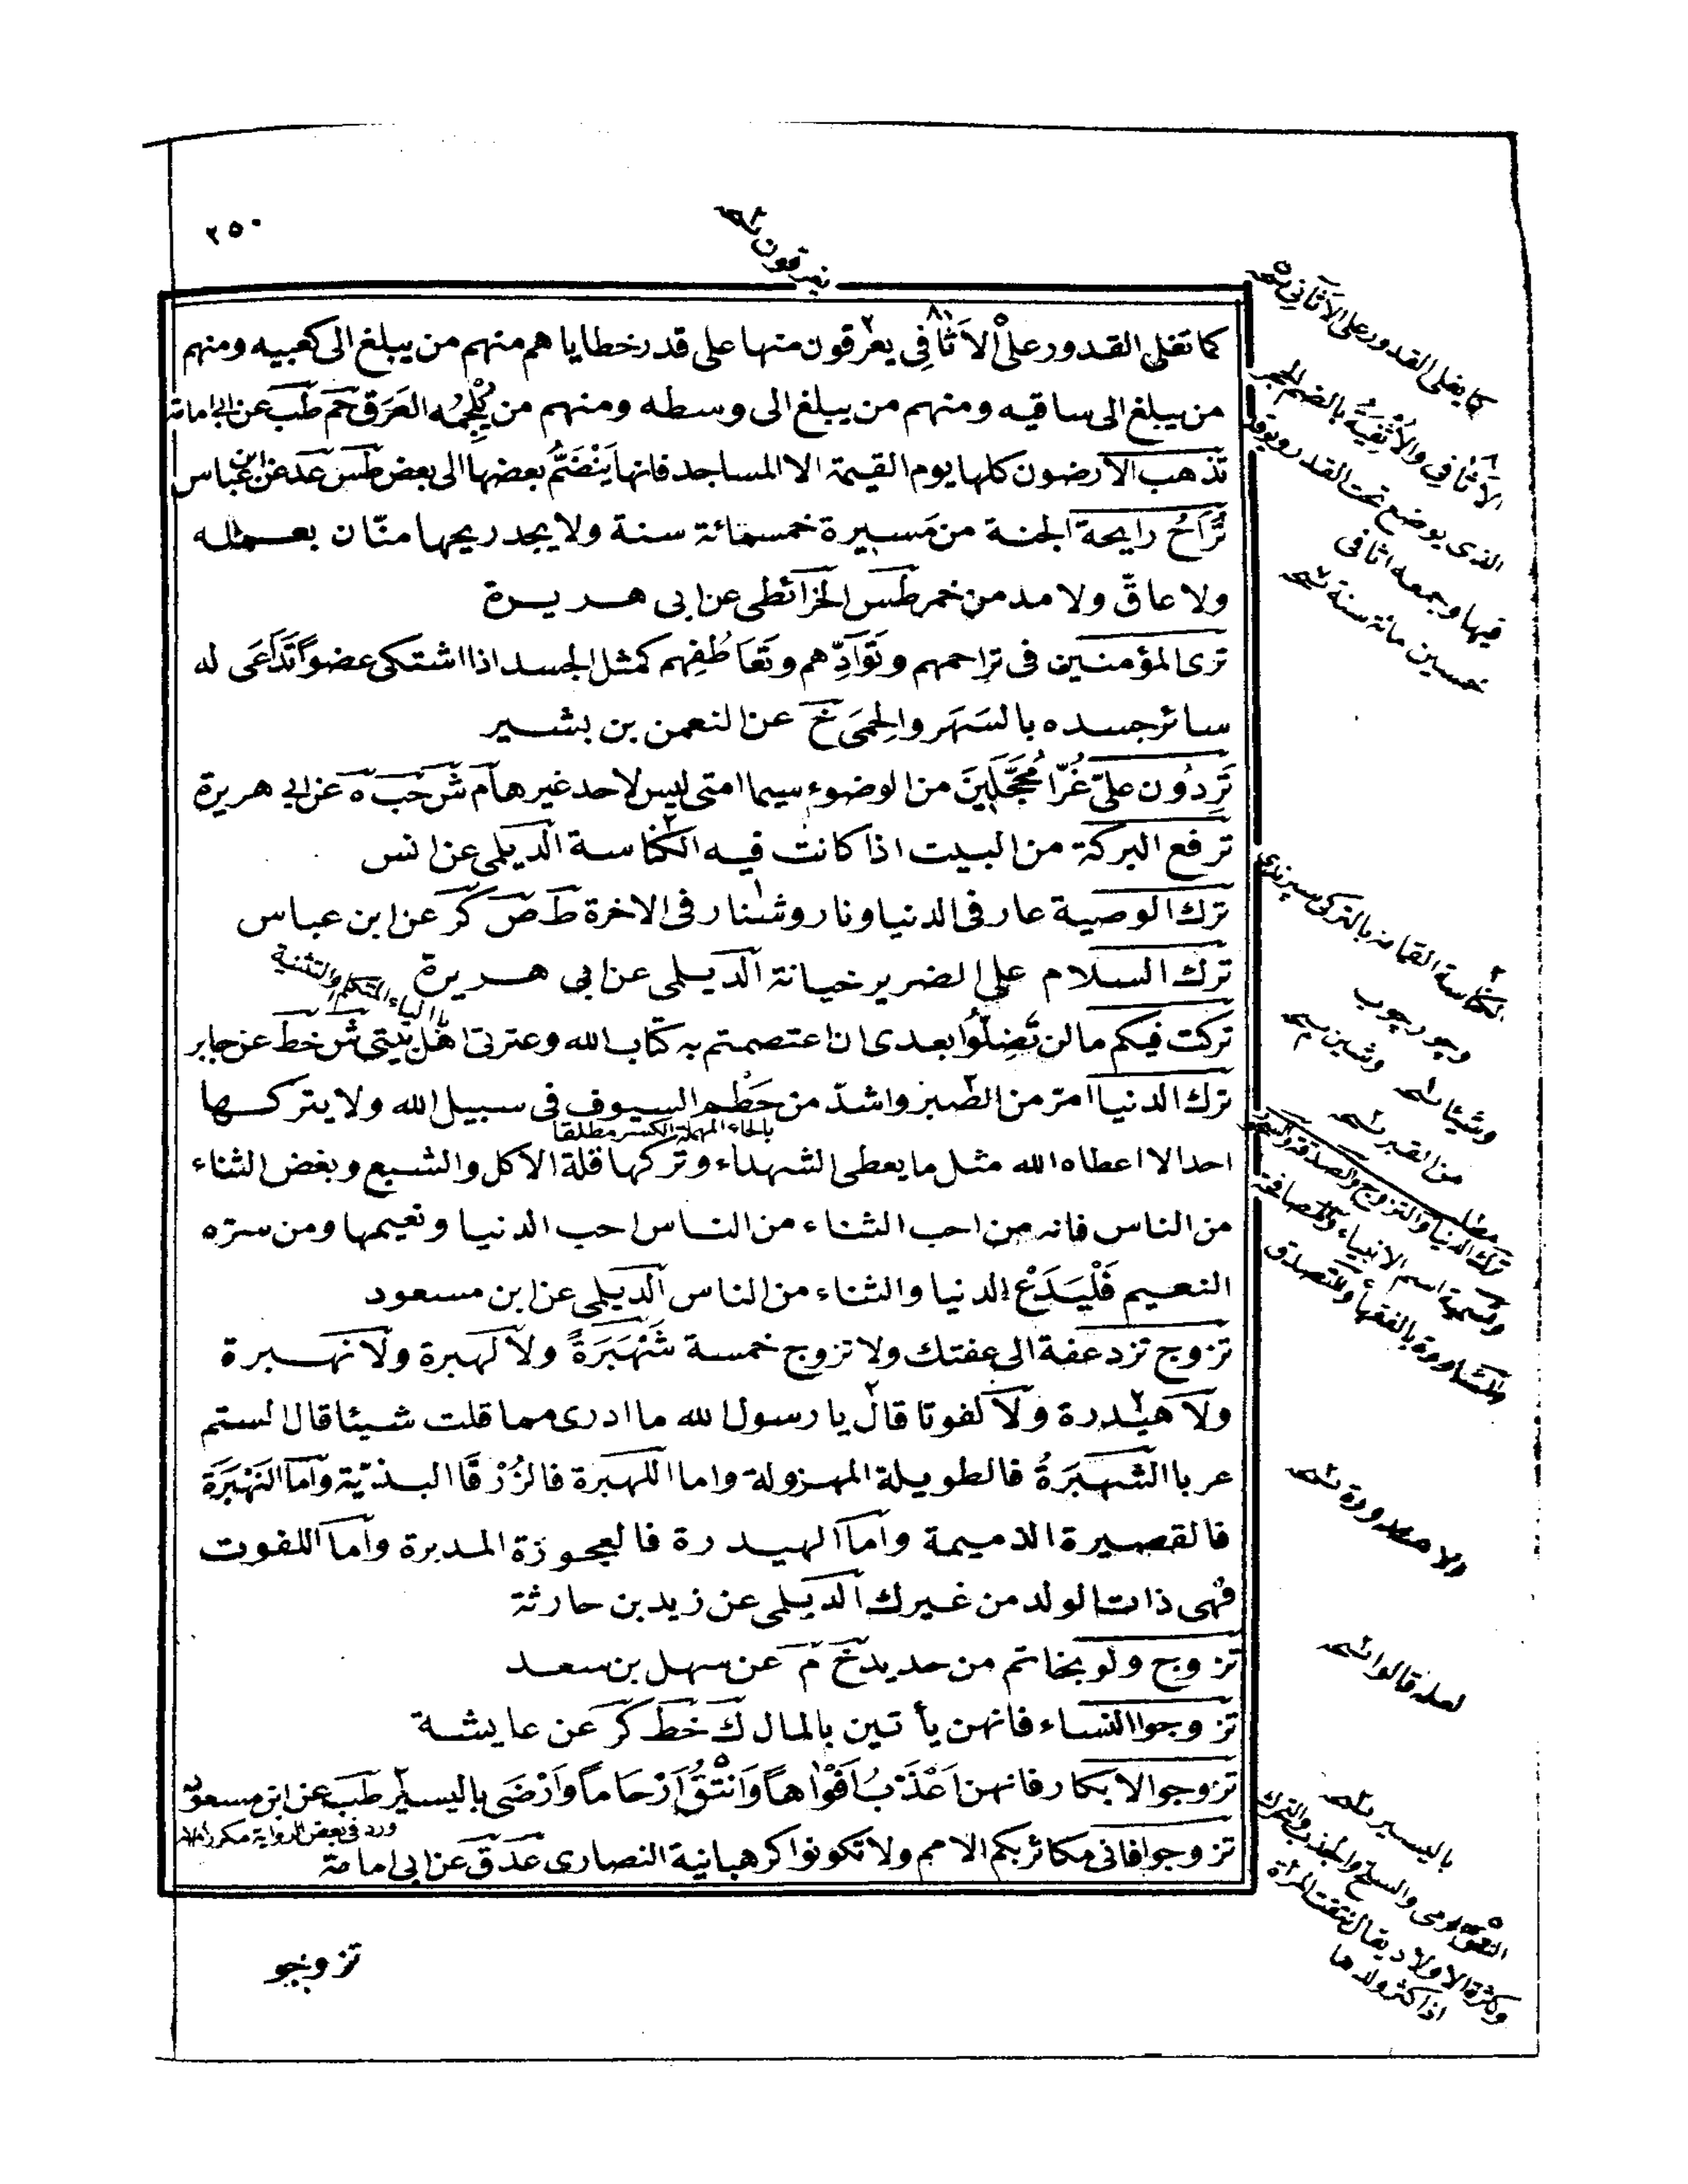 ٢٥٠
يعرقون نسخه
كما تغلى القدور على الاَثَافِى يعرقون منها على قدر خطايا هم منهم من يبلغ الى كعبيه ومنهم
من يبلغ الى ساقيه ومنهم من يبلغ الى وسطه ومنهم من يُلْجِمُه العَرَق حم طب عن ابى امامة
تذهب الارضون كلها يوم القيمة الا المساجد فانها يَنْضَمُّ بعضها الى بعض طس عد عن ابن عباس
تُرَاحُ رايحة الجنة من مَسيرة خمسمائة سنة ولا يجد ريحها منّان بعمله
ولا عاقّ ولا مدمن خمر طس الخرائطى عن ابى هريرة
ترى المؤمنين فى تراحمهم وتَوَادِّهم وتَعَاطُفِهم كمثل الجسد اذا اشتكى عضواً تَدَاعَى له
سائر جسده بالسَهَر والحِمَى خ عن النعمن بن بشير
تَرِدُون علىّ غُرّا مُحَجَّلِينَ من الوضوء سيما امتى ليس لاحد غيرها م ش حب ه عن ابى هريرة
ترفع البركة من البيت اذا كانت فيه الكناسة الديلمى عن انس
ترك الوصية عار فى الدنيا ونار وشنار فى الاخرة ط ص كر عن ابن عباس
ترك السلام على الضرير خيانة الديلمى عن ابى هريرة
بالياء المتكلم والتثنية
تركت فيكم ما لن تَضِلّوا بعدى ان اعتصمتم به كتاب الله وعترتى اهل بيتى ش خط عن جابر
ترك الدنيا امرّ من الصبر واشدّ من حَطْم السيوف فى سبيل الله ولا يتركها
بالحاء المهملة الكسر مطلقا
احد الا اعطاه الله مثل ما يعطى الشهداء وتركها قلة الاكل والشبع وبغض الثناء
من الناس فانه من احب الثناء من الناس احب الدنيا ونعيمها ومن سرّه
النعيم فَلْيَدَعْ الدنيا والثناء من الناس الديلمى عن ابن مسعود
تزوج تزد عفة الى عفتك ولا تزوج خمسة شَهْبَرَةً ولا لهبرة ولا نهبرة
ولا هيدرة ولا لفوتا قال يا رسول الله ما ادرى مما قلت شيئا قال الستم
عربا الشَهْبَرَةُ فالطويلة المهزولة واما اللهبرة فالزُرْقَا البذيّة واما النَهْبَرَة
فالقصيرة الذميمة واما الهيدرة فالعجوزة المدبرة واما اللفوت
فهى ذات الولد من غيرك الديلمى عن زيد بن حارثة
تزوج ولو بخاتم من حديد خ م عن سهل بن سعد
تزوجوا النساء فانهن يأتين بالمال ك خط كر عن عايشة
تزوجوا الابكار فانهن اَعْذَبُ اَفْوَاهاً وَانْتَقُ اَرْحَاماً وَاَرْضَى باليسير طب عن ابن مسعود
ورد فى بعض الرواية مكررا
تزوجوا فانى مكاثر بكم الامم ولا تكونوا كرهبانية النصارى عد ق عن ابى امامة
تزوجو
كما يغلى القدور على الاَثافى نسخه
الاثافى والاُثفِيَةُ بالضم الحجر
الذى يوضع تحت القدر ويوقد
فيها وجمعه اثافى
خمسين مائة سنة نسخه
الكناسة القمامة بالتركى سپرندى
وچور چوب
وشيئا نسخه
من القبر نسخه
مطلب
ترك الدنيا والتزوج والصدقة
وتسمية اسم الانبياء والمصافحة
والمشاورة بالفقهاء والتصدق
لعله قالوا نسخه
باليسير نسخه
وكثرة الاولاد يقال نتقت المرأة
اذا كثر ولدها